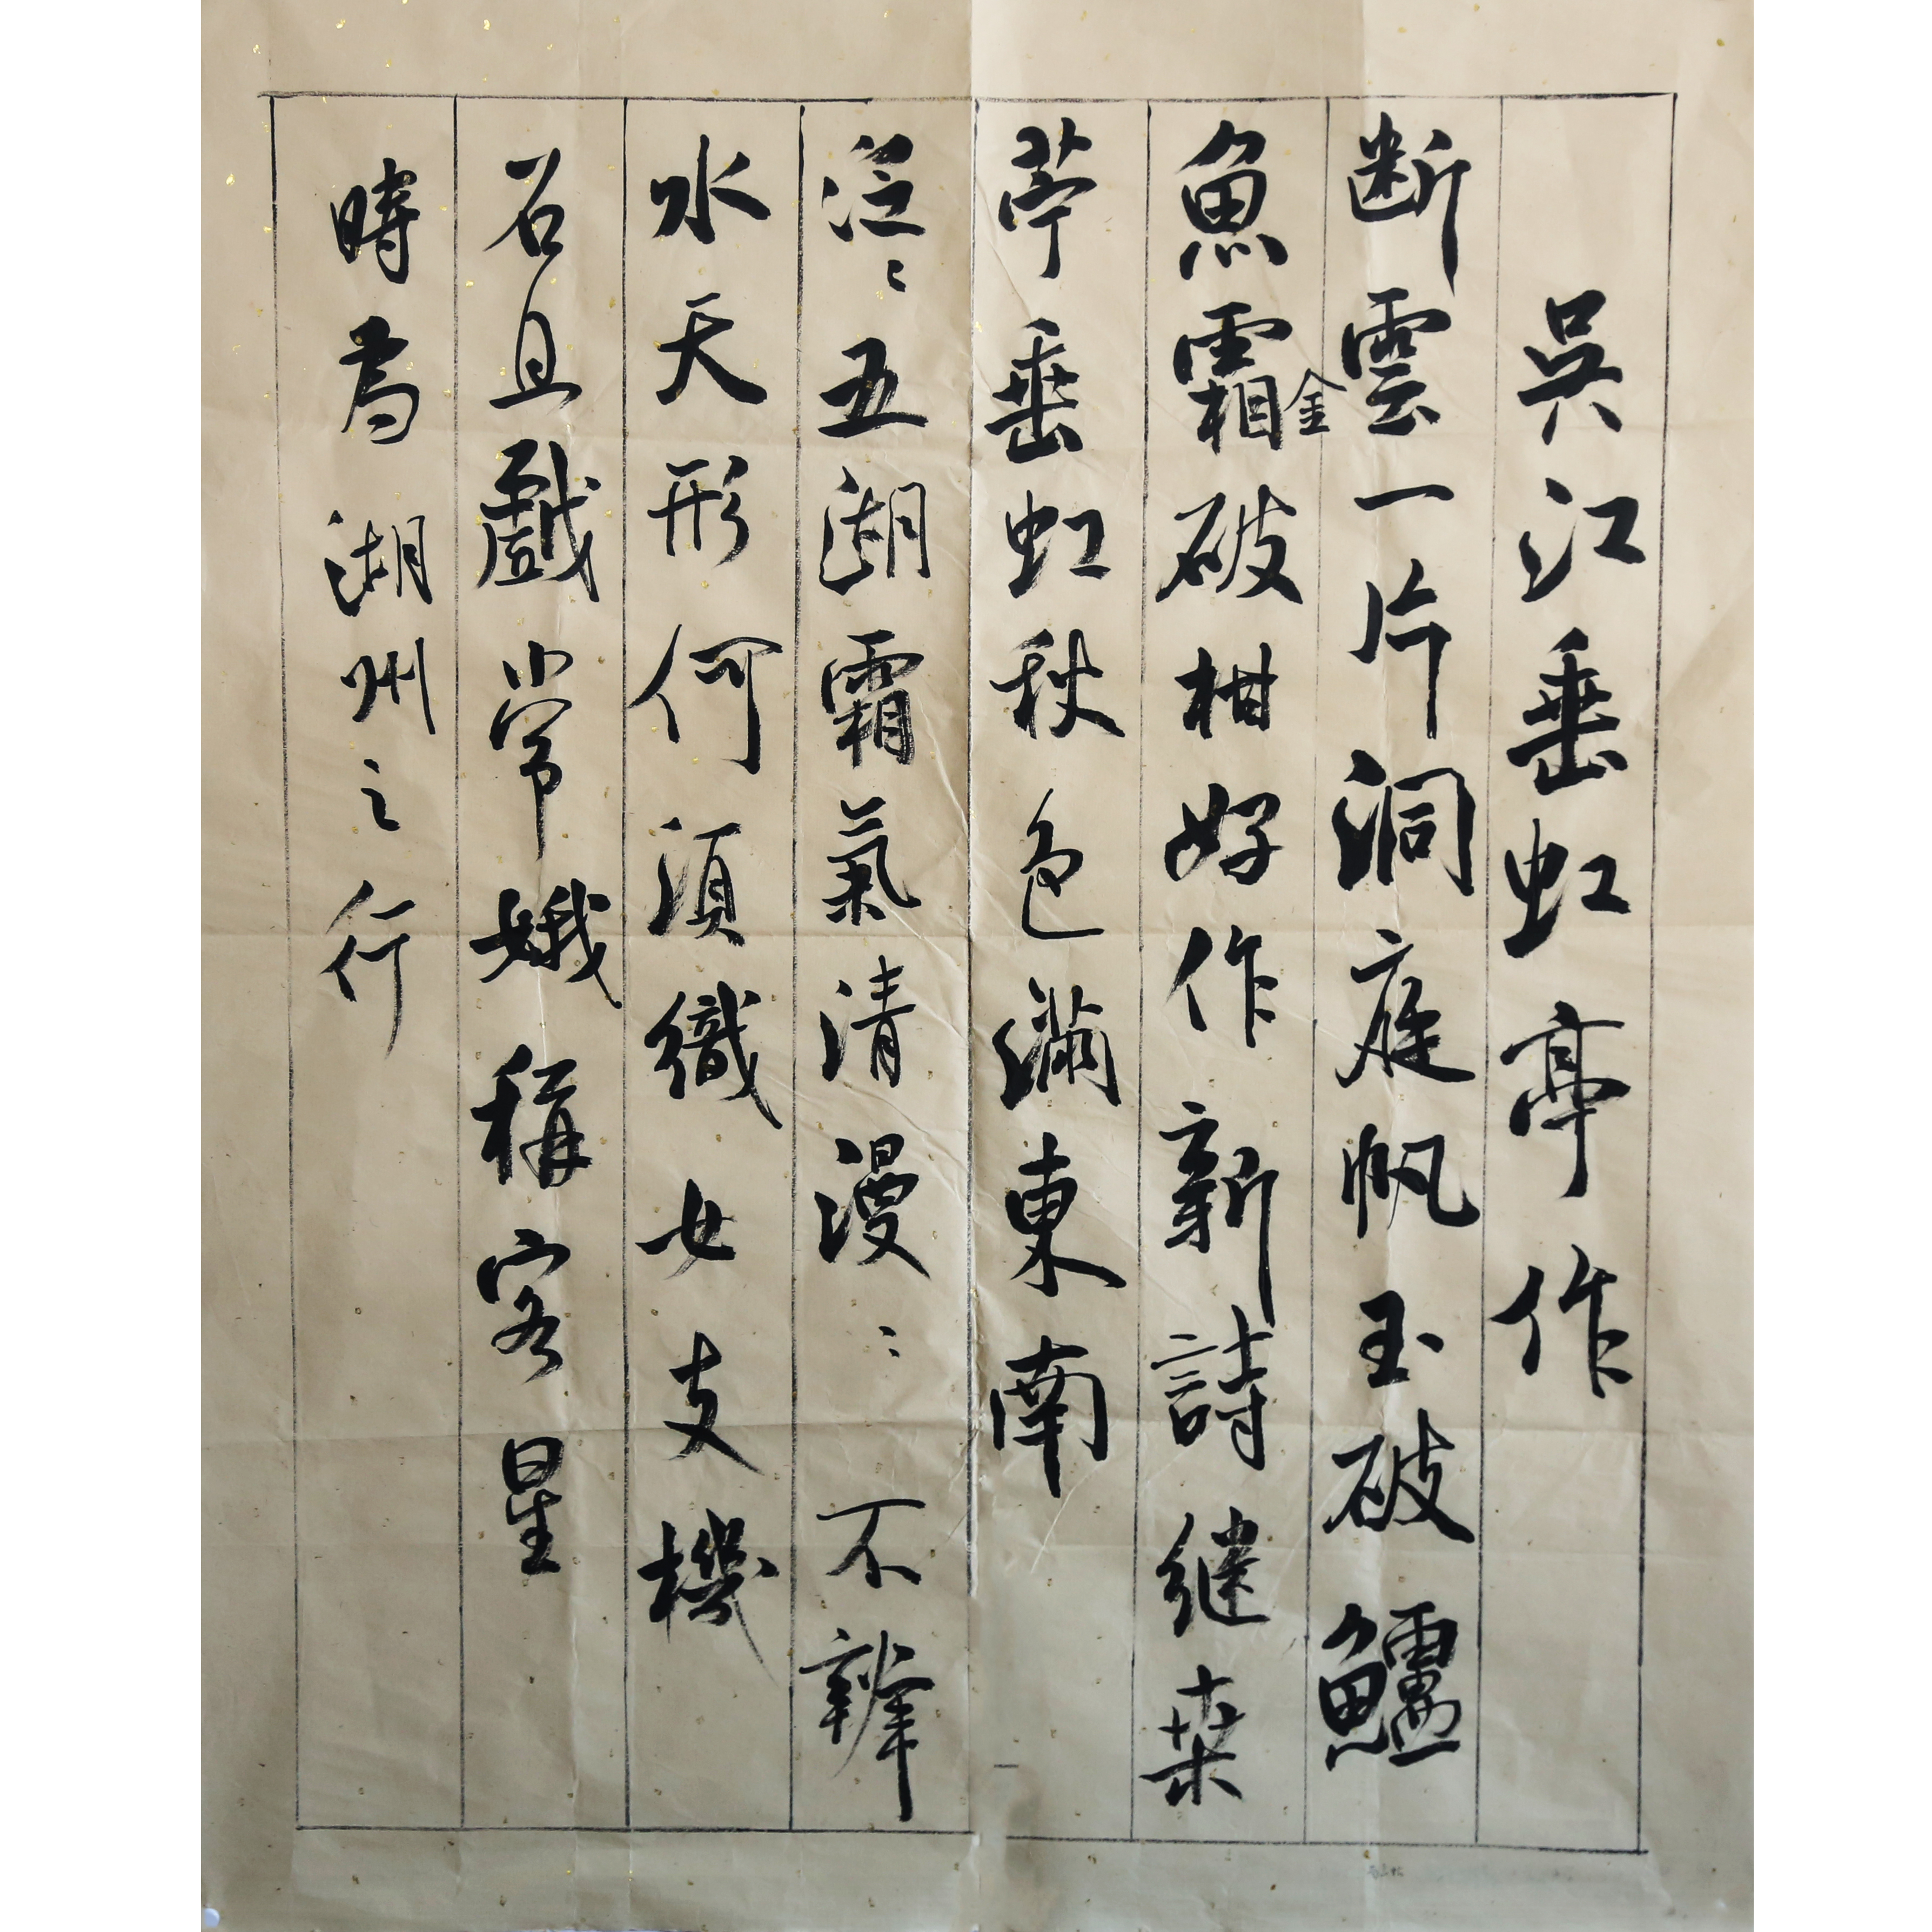 吳江垂虹亭作
断雲一片洞庭帆玉破鱸
魚霜金破柑好作新詩継桒
苧垂虹秋色滿東南
泛〻五湖霜氣清漫〻不辨
水天形何須織女支機
石且戲常娥稱客星
時為湖州之行